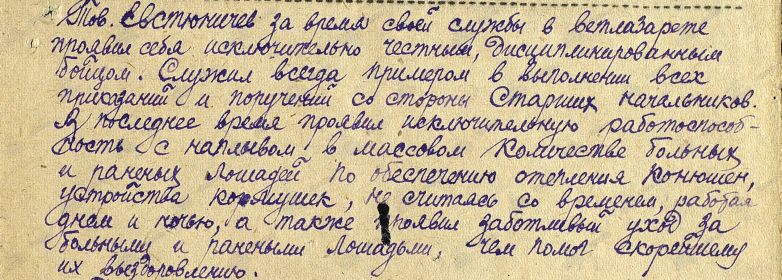 Тов. Евстюничев за время своей службы в ветлазарете
проявил себя исключительно честным, дисциплинированным
бойцом. Служил всегда примером в выполнении всех
приказаний и поручений со стороны Старших начальников.
В последнее время проявил исключительную работоспособ-
ность с наплывом в массовом количестве больных
и раненых лошадей по обеспечению отепления конюшен,
устройства кормушек, не считаясь со временем, работая
днем и ночью, а также проявил заботливый уход за
больными и ранеными лошадьми, чем помог скорейшему
их выздоровлению.